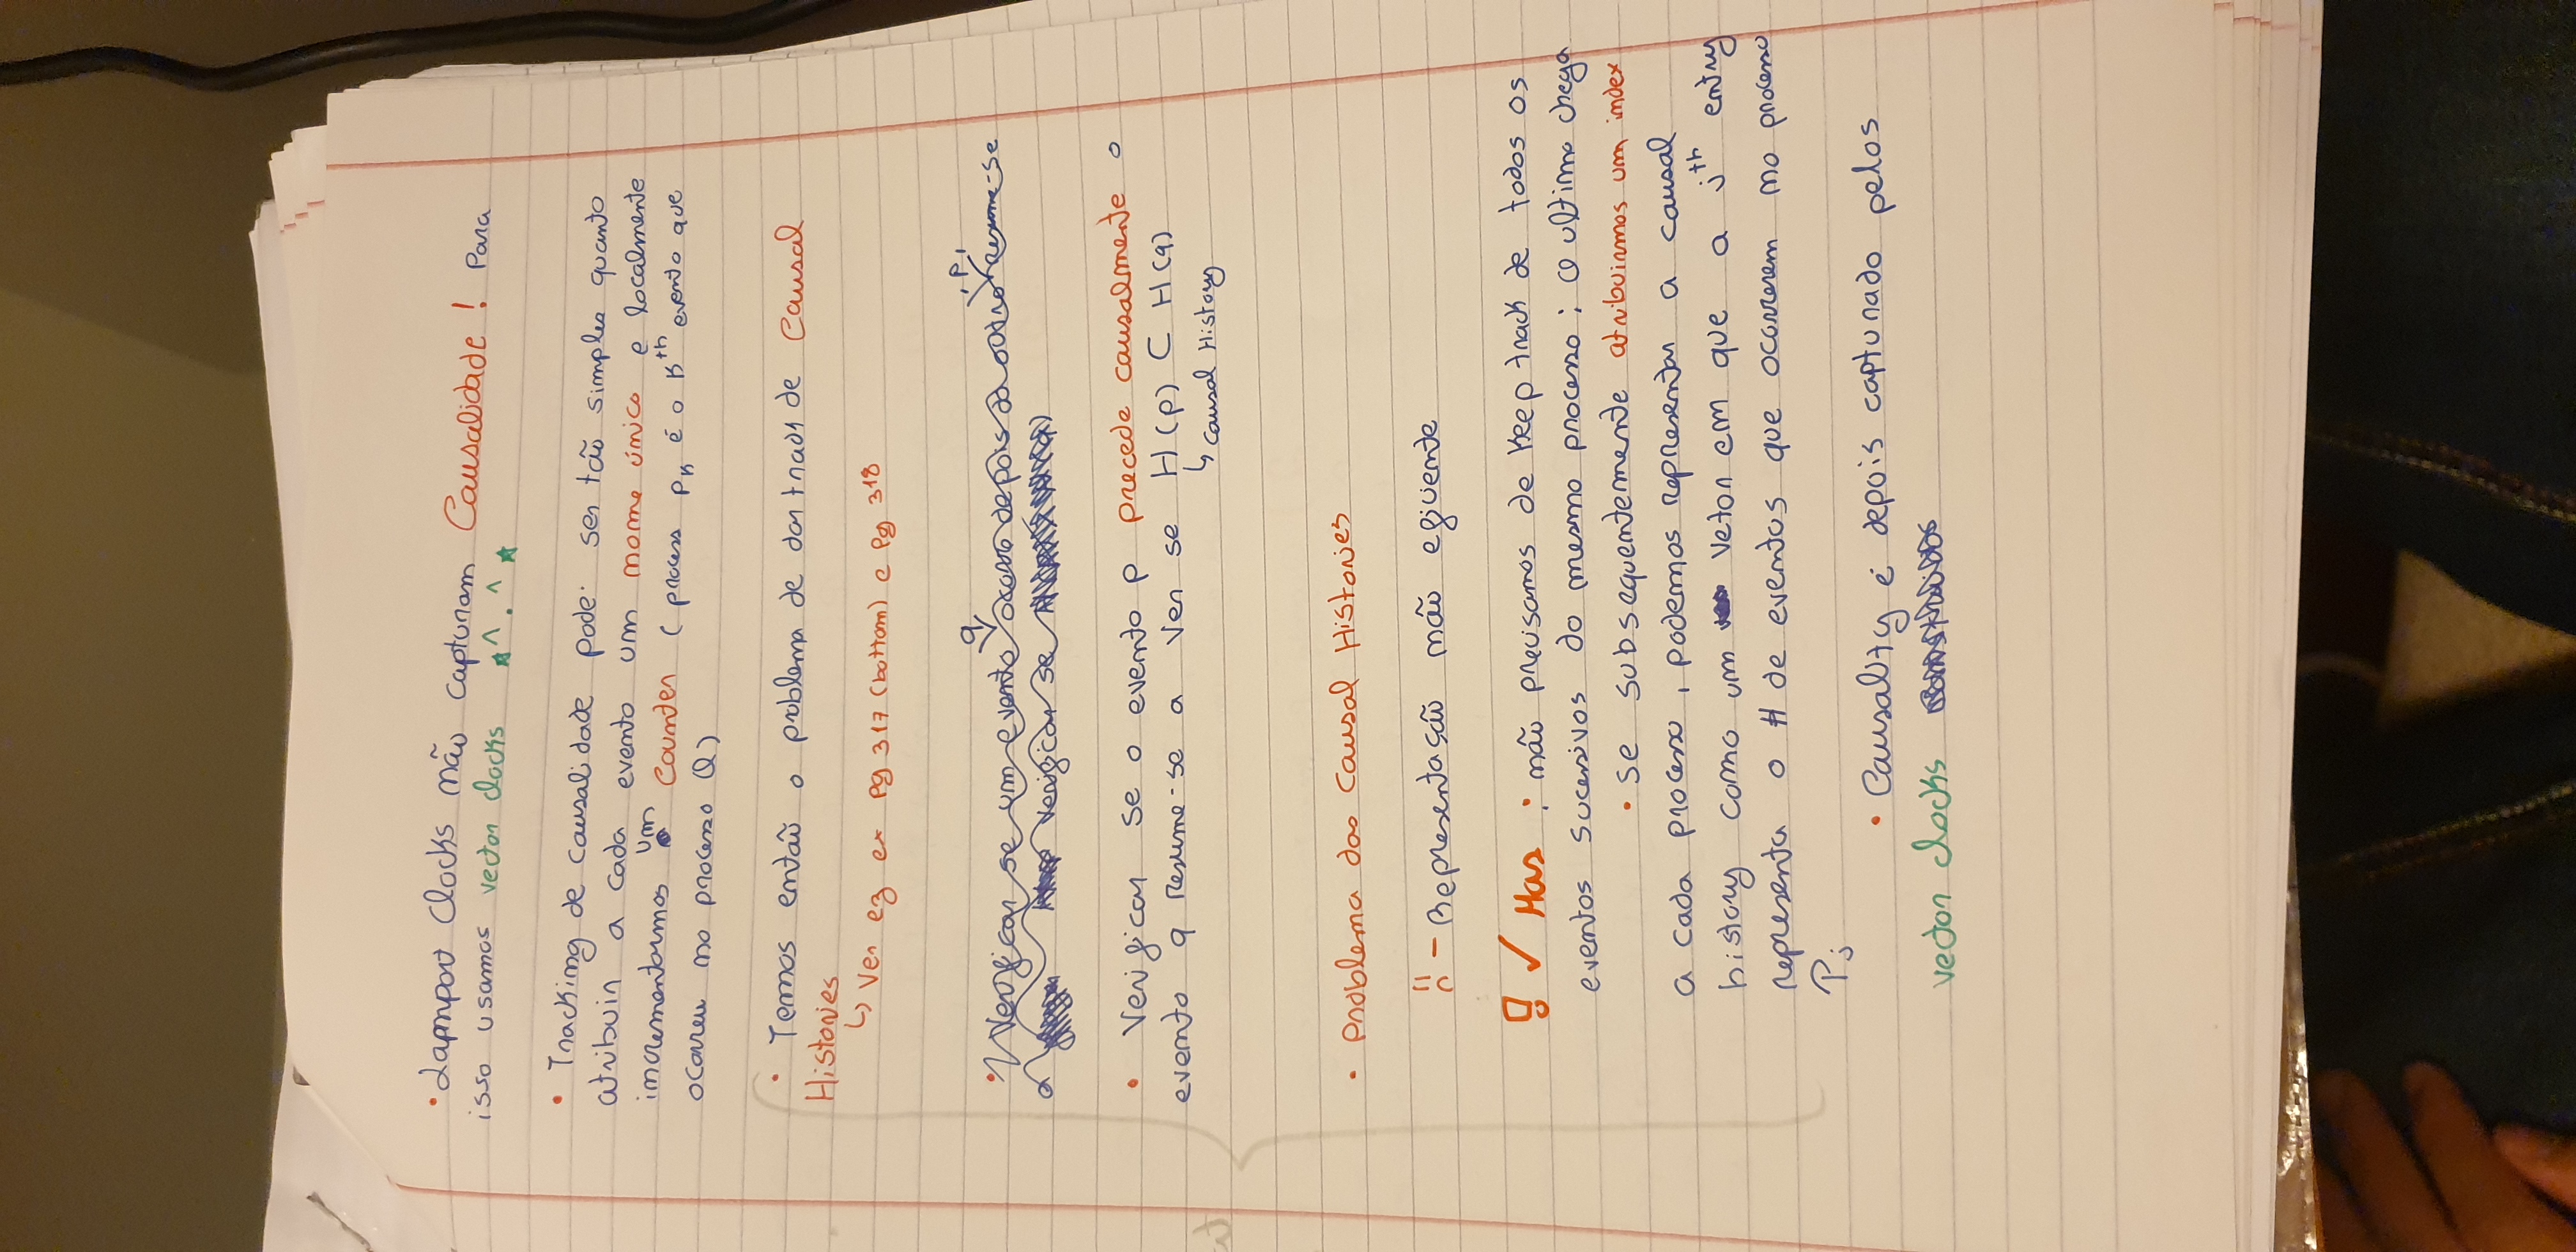 • Lapmport Clocks não capturam Causalidade ! Para
isso usamos vector clocks ★^.^★
• Tracking de causalidade pode ser tão simples quanto
atribuir a cada evento um nome único e localmente
incrementarmos um Counter ( process pk é o kth evento que
ocorreu no processo Q)
• Temos então o problema de dar track de Causal
Histories
↳ Ver eg ex Pg 317 (bottom) e Pg 318
q p
• Verificar se um evento ocorre depois do outro resume-se
a verificar se
• Verificar se o evento p precede causalmente o
evento q resume-se a ver se H(p) ⊂ H(q)
↳ causal History
• Problema das Causal Histories
- Representação não eficiente
! ✓ Mas : não precisamos de Keep track de todos os
eventos sucessivos do mesmo processo ; O ultimo chega
• Se subsequentemente atribuirmos um index
a cada processo , podemos representar a causal
history como um vetor em que a jth entry
representa o # de eventos que ocorrerem no processo
Pj
• Causality é depois capturado pelos
vector clocks